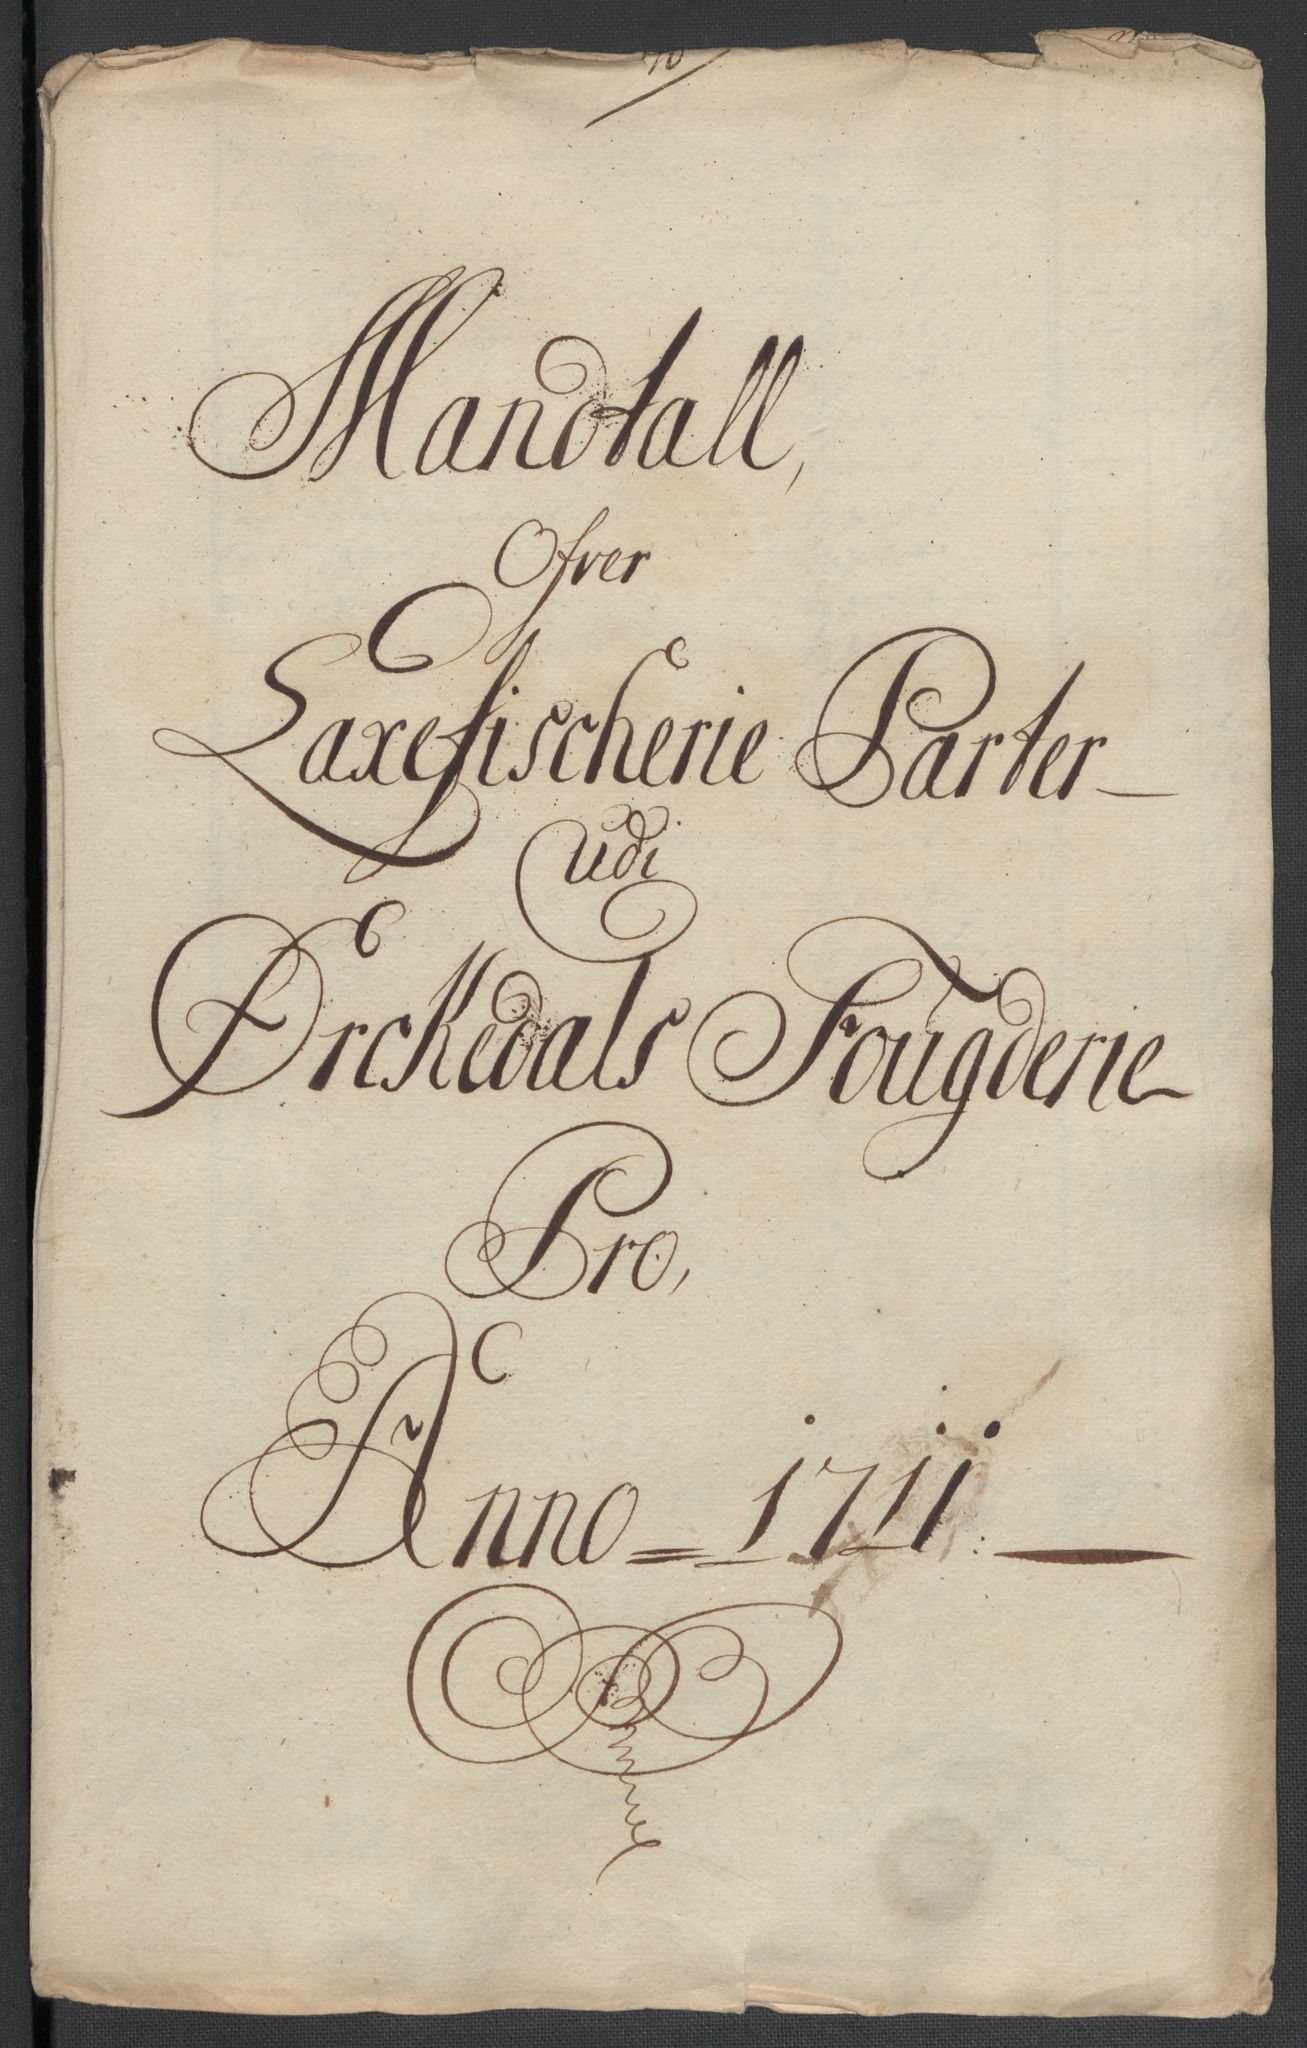 Mandtall,
Ofver
Laxefischerie Parter
udi
Ørckedals Fougderie
Pro,
Anno 1711